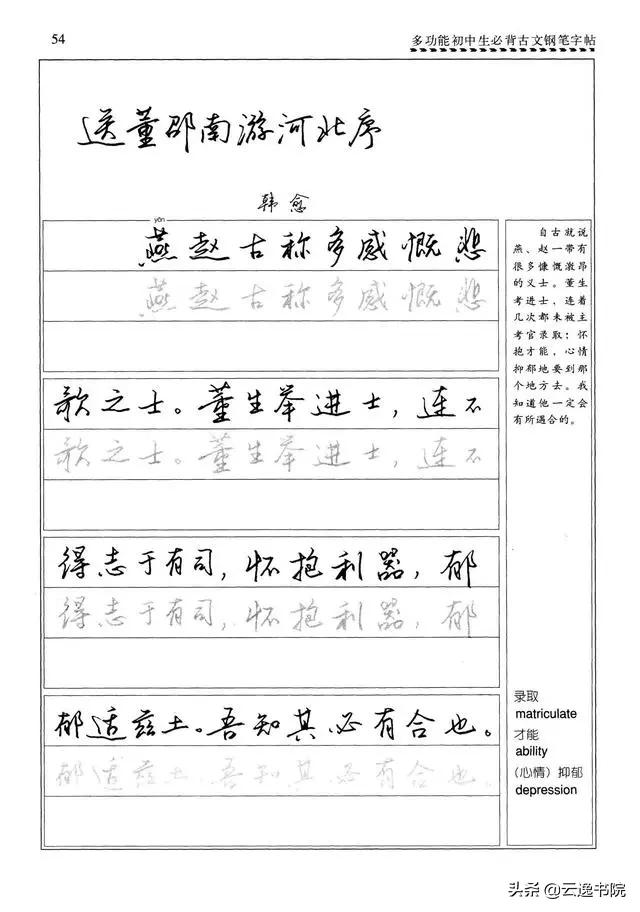 54
多功能初中生必背古文钢笔字帖
送董邵南游河北序
韩愈
yān
燕赵古称多感慨悲
燕赵古称多感慨悲
歌之士。董生举进士，连不
歌之士。董生举进士，连不
得志于有司，怀抱利器，郁
得志于有司，怀抱利器，郁
郁适兹土。吾知其必有合也。
郁适兹土。吾知其必有合也。
自古就说
燕、赵一带有
很多慷慨激昂
的义士。董生
考进士，连着
几次都未被主
考官录取；怀
抱才能，心情
抑郁地要到那
个地方去。我
知道他一定会
有所遇合的。
录取
matriculate
才能
ability
（心情）抑郁
depression
头条 @云逸书院